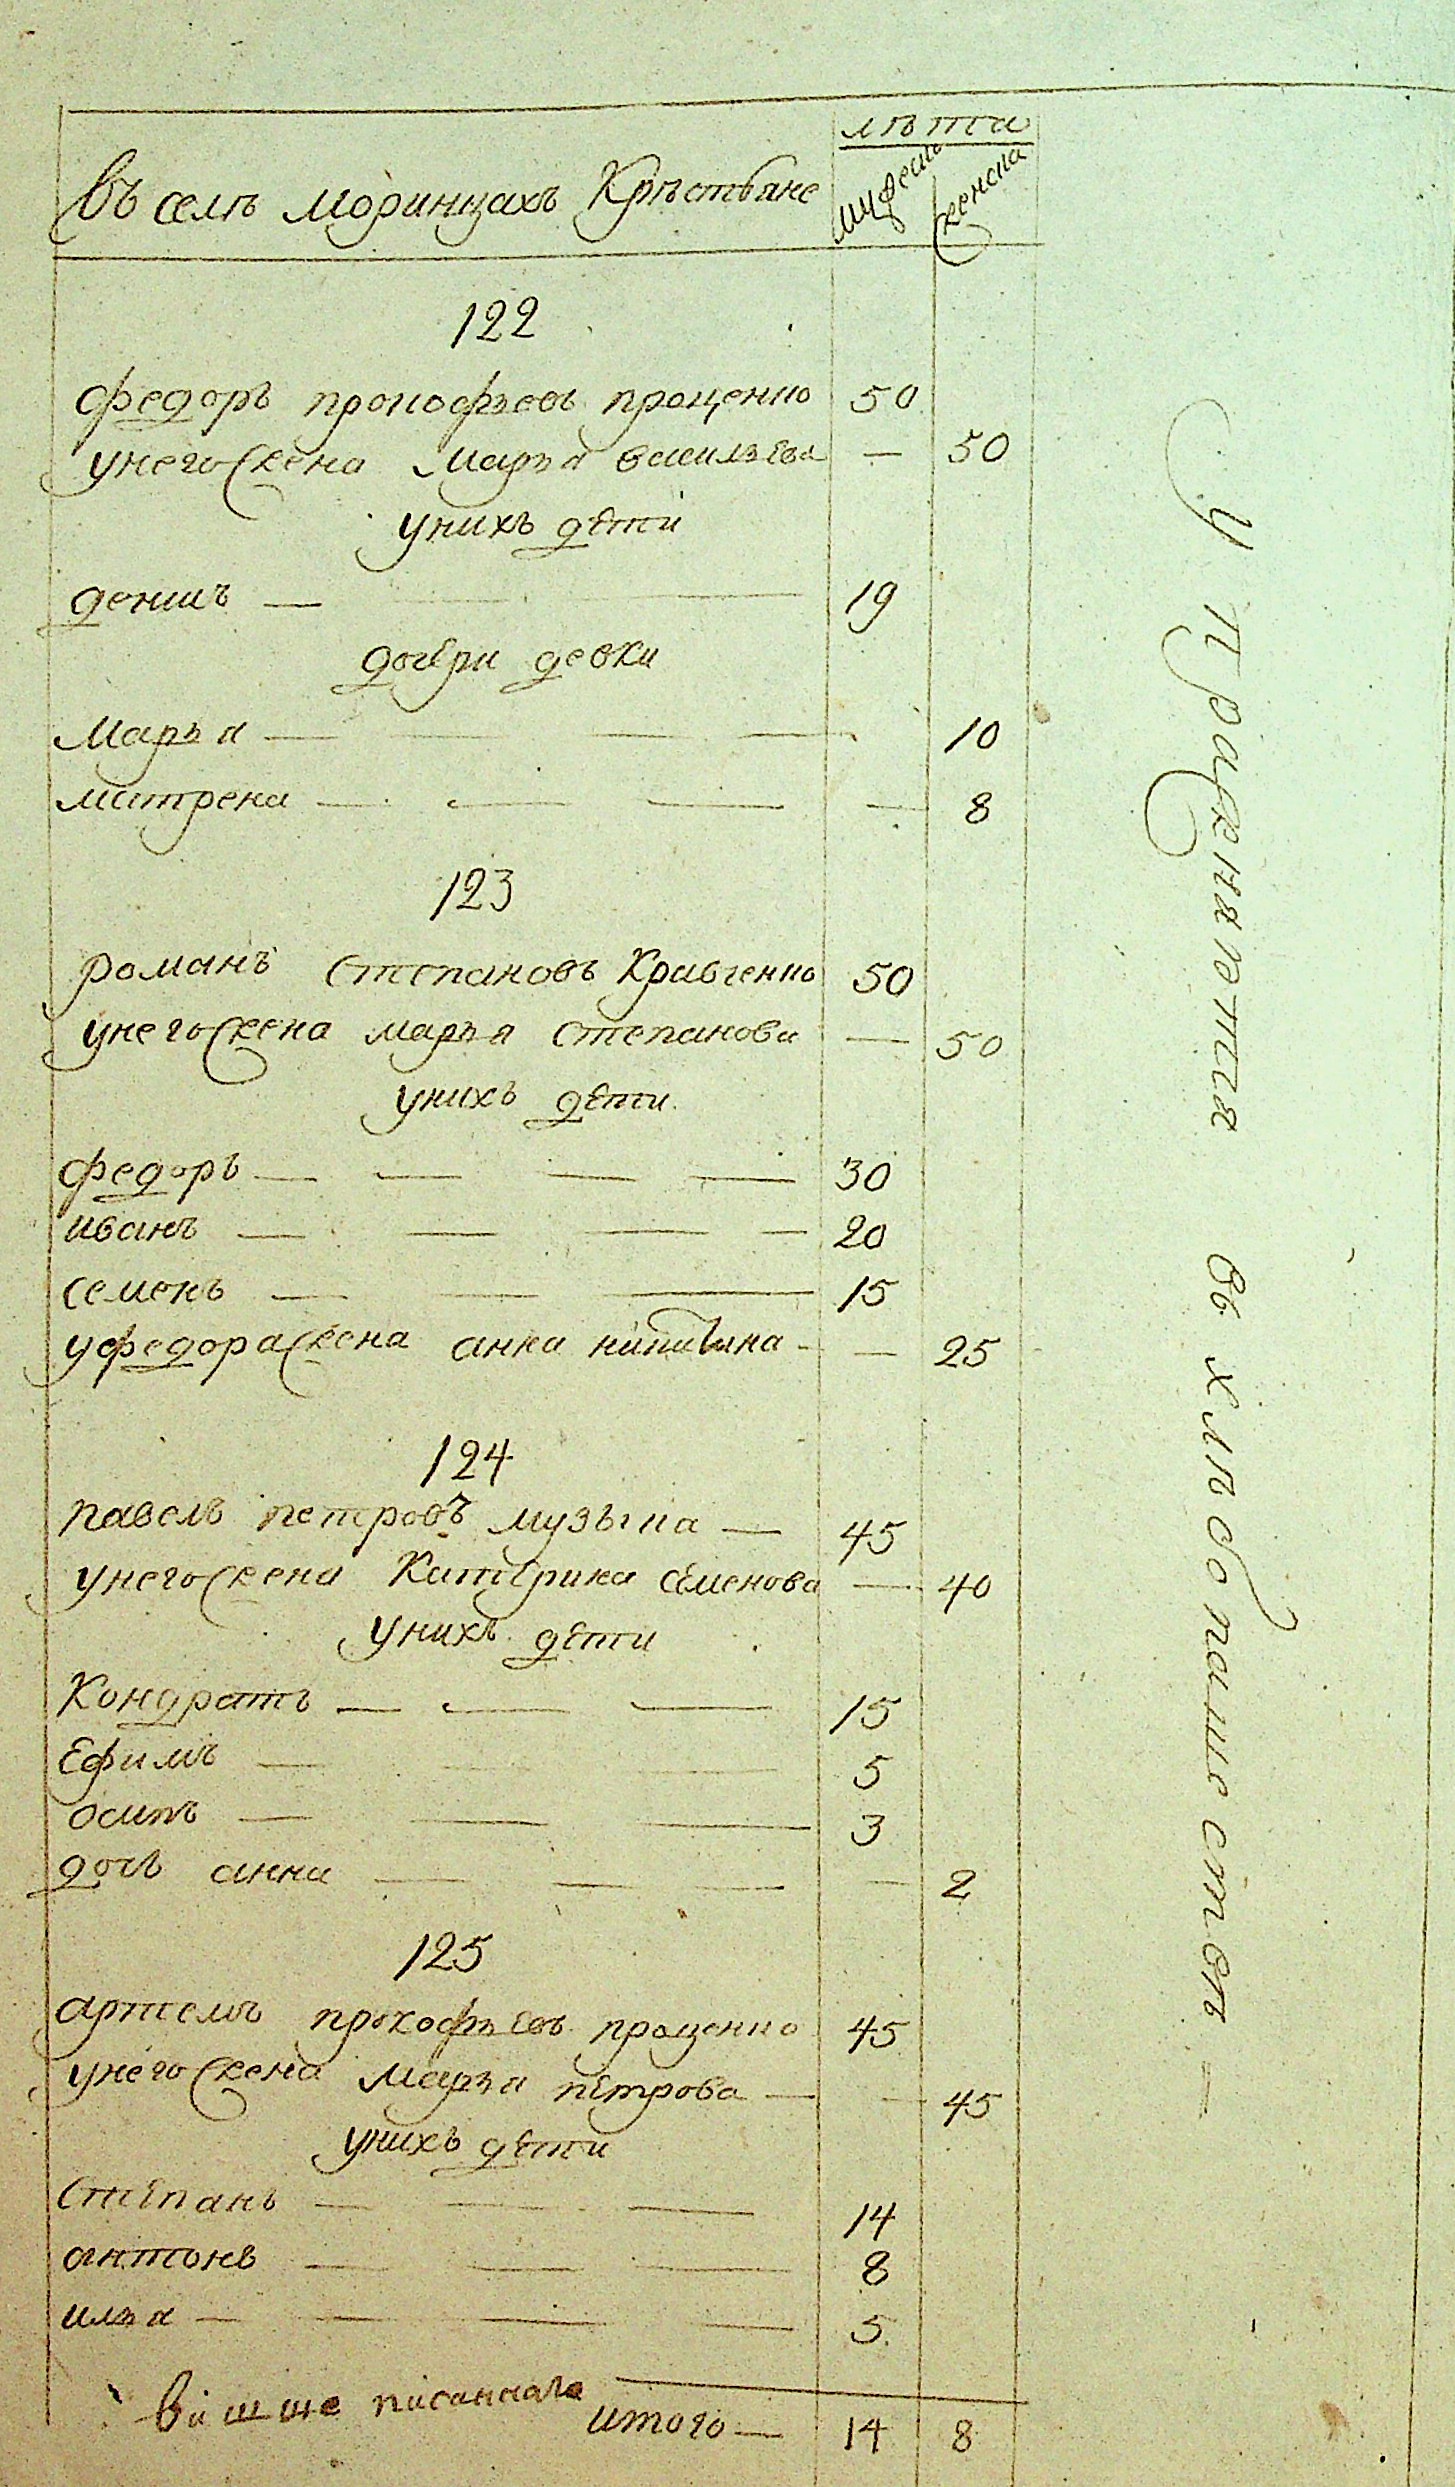 лѣта
въ селѣ моринцахъ Крѣстьяне
мужескъ
женска
122
федоръ прокофъевъ проценко 50
унего жена маръя василъева — 50
унихъ дети
денисъ — 19
дочери девки
маръя — 10
матрена — — 8
123
романъ степановъ Кравченко 50
унего жена маръя степанова — 50
унихъ дети
федоръ — 30
иванъ — 20
семенъ — 15
уфедора жена анна никитина — 25
124
павелъ петровъ музыка — 45
унего жена Катерина семенова — 40
унихъ дети
Кондратъ — 15
ефимъ — 5
осипъ — 3
дочъ анна — — 2
125
артемъ прокофъевъ проценко 45
унего жена маръя петрова — — 45
унихъ дети
степанъ — 14
антонъ — 8
илъя — 5
писаннаго
итого — 14 8
упражняетца въ хлѣбопашествѣ —